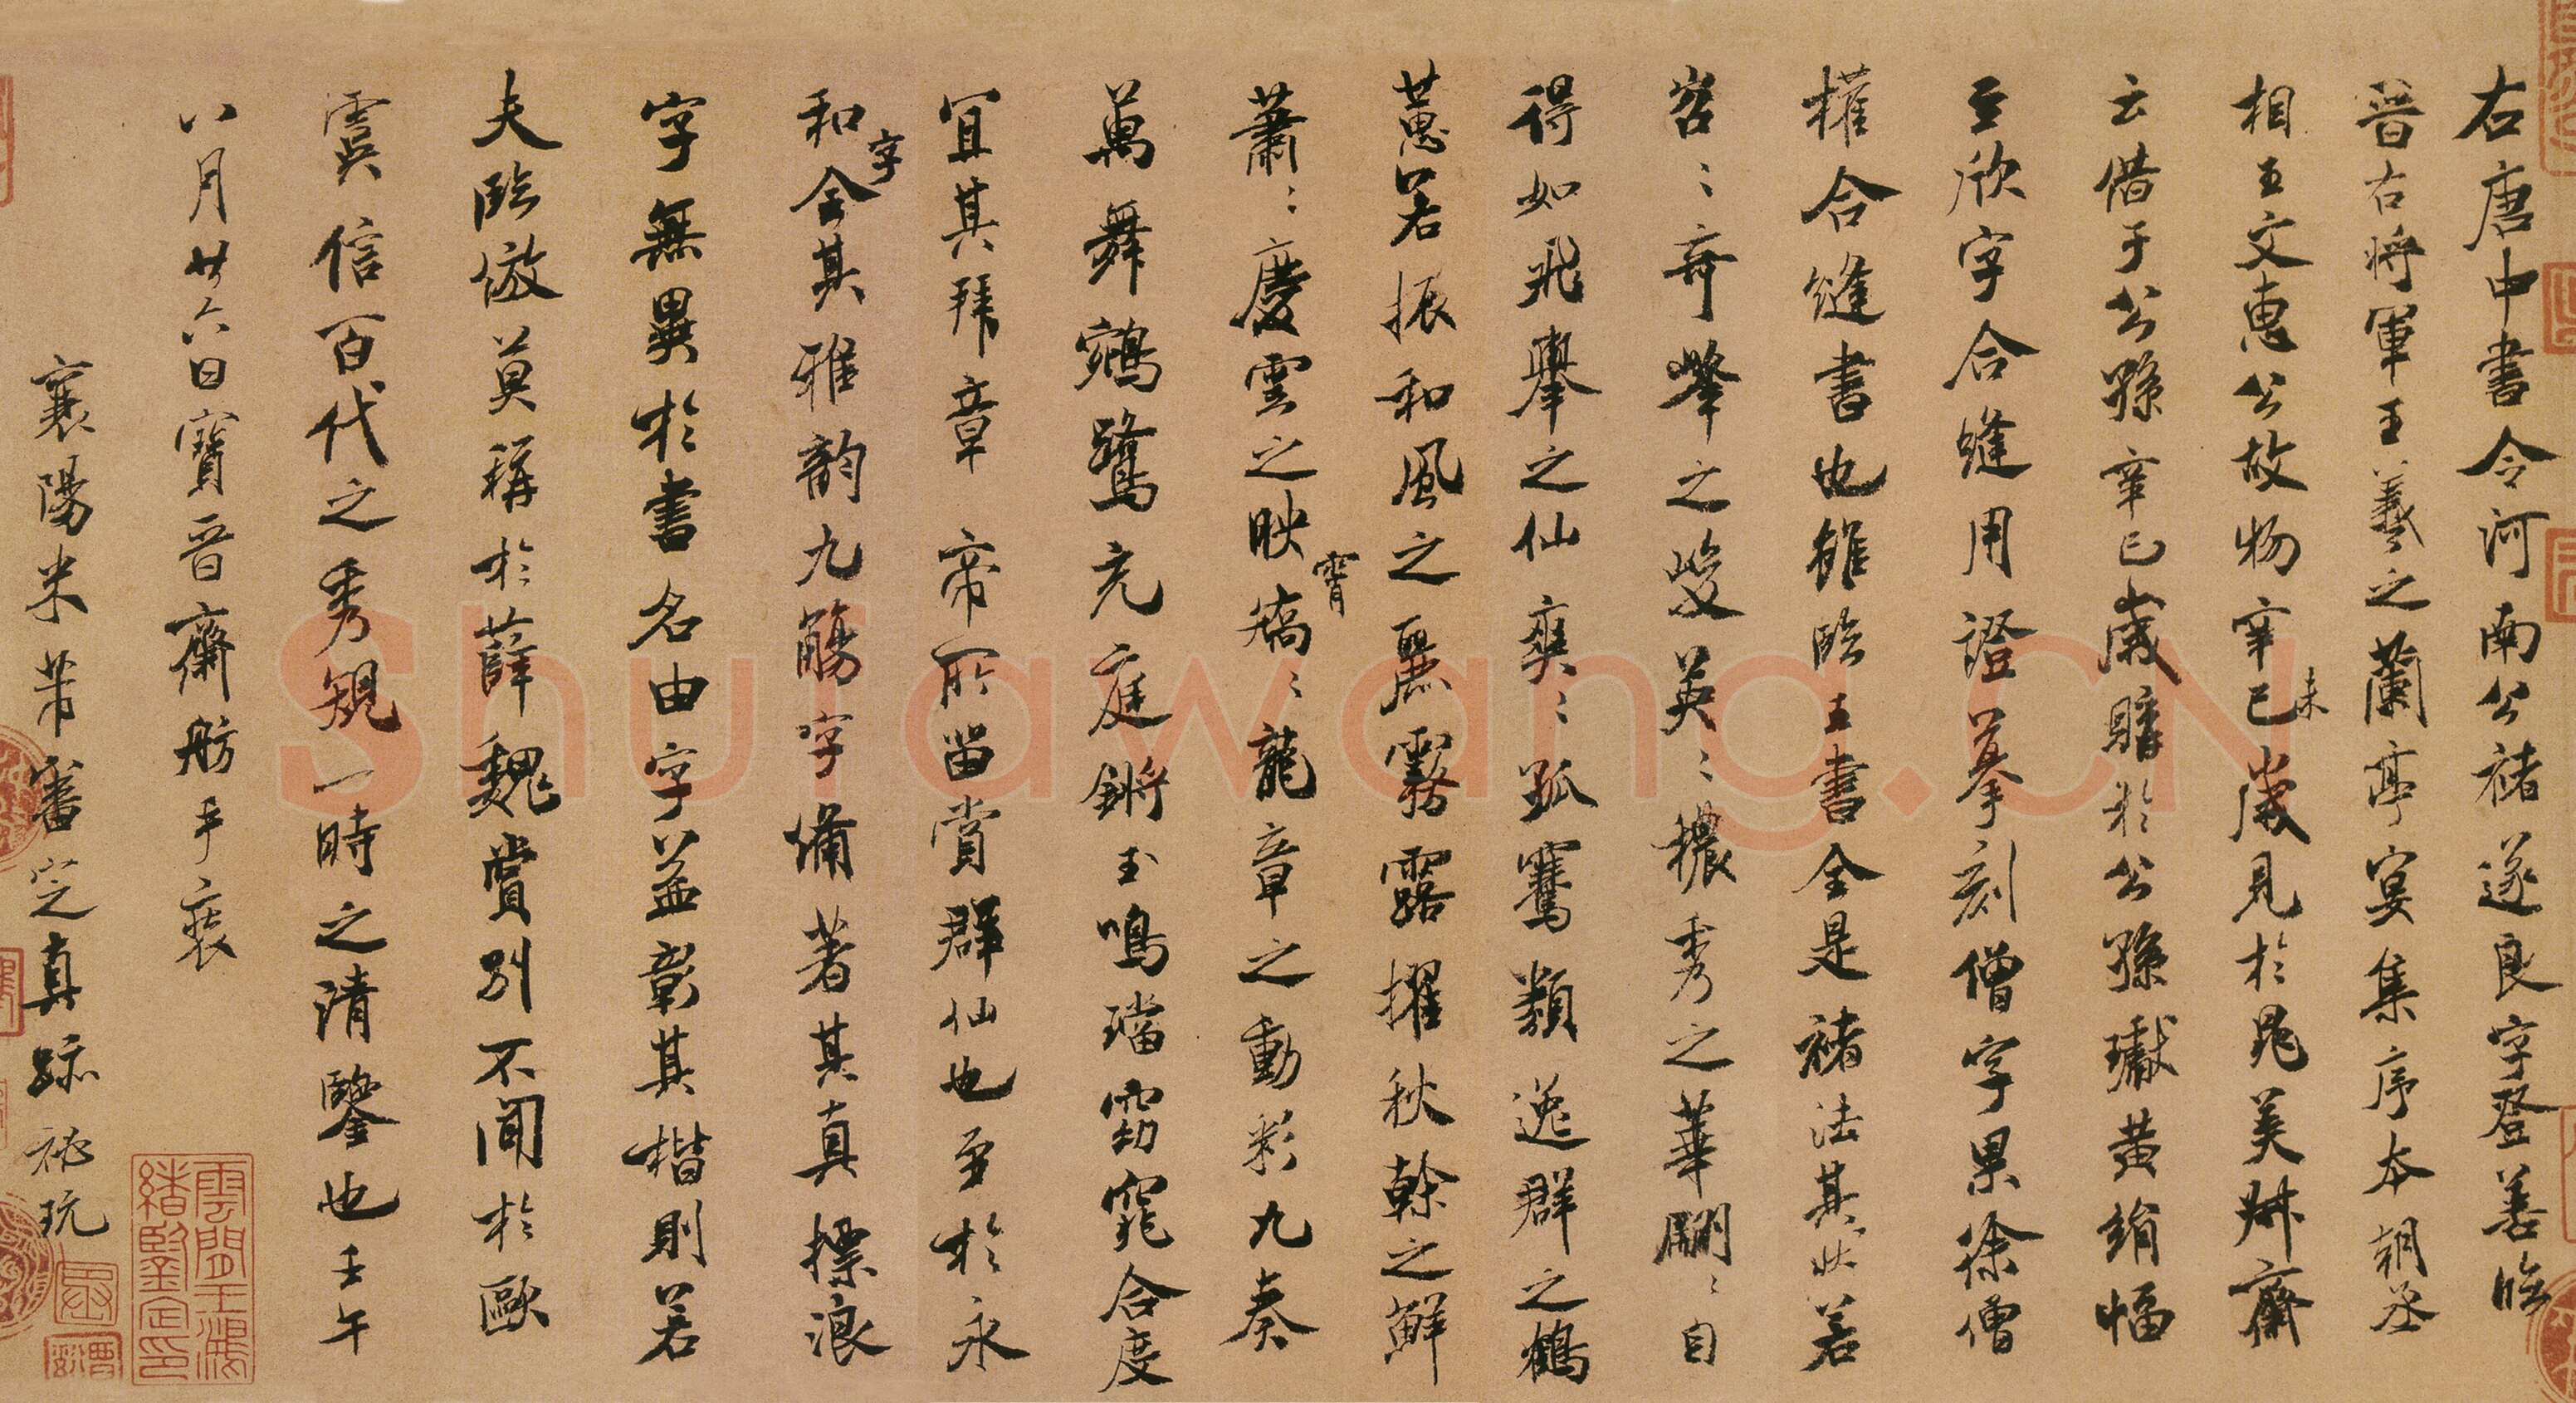 右唐中書令河南公褚遂良字登善臨
晉右將軍王羲之蘭亭宴集序本朝丞
相王文惠公故物辛已未歲見於晁美叔齋
云借于公孫辛已歲購於公孫瓛黃絹幅
至欣字合縫用證摹刻僧字果徐僧
權合縫書也雖臨王書全是褚法其狀若
岩〻奇峯之峻英〻穠秀之華翩〻自
得如飛舉之仙爽〻孤騫類逸群之鶴
蕙若振和風之麗霧露擢秋幹之鮮
蕭〻慶雲之映霄矯〻龍章之動彩九奏
萬舞鵷鷺充庭鏘玉鳴璫窈窕合度
宜其拜章帝所留賞群仙也至於永
和字全其雅韵九觴字備著其真摽浪
字無異於書名由字益彰其楷則若
夫臨倣莫稱於薛魏賞別不聞於歐
虞信百代之秀規一時之清鑒也壬午
八月廿六日寶晉齋舫手裝
襄陽米芾審定真跡祕玩
shufawang.CN